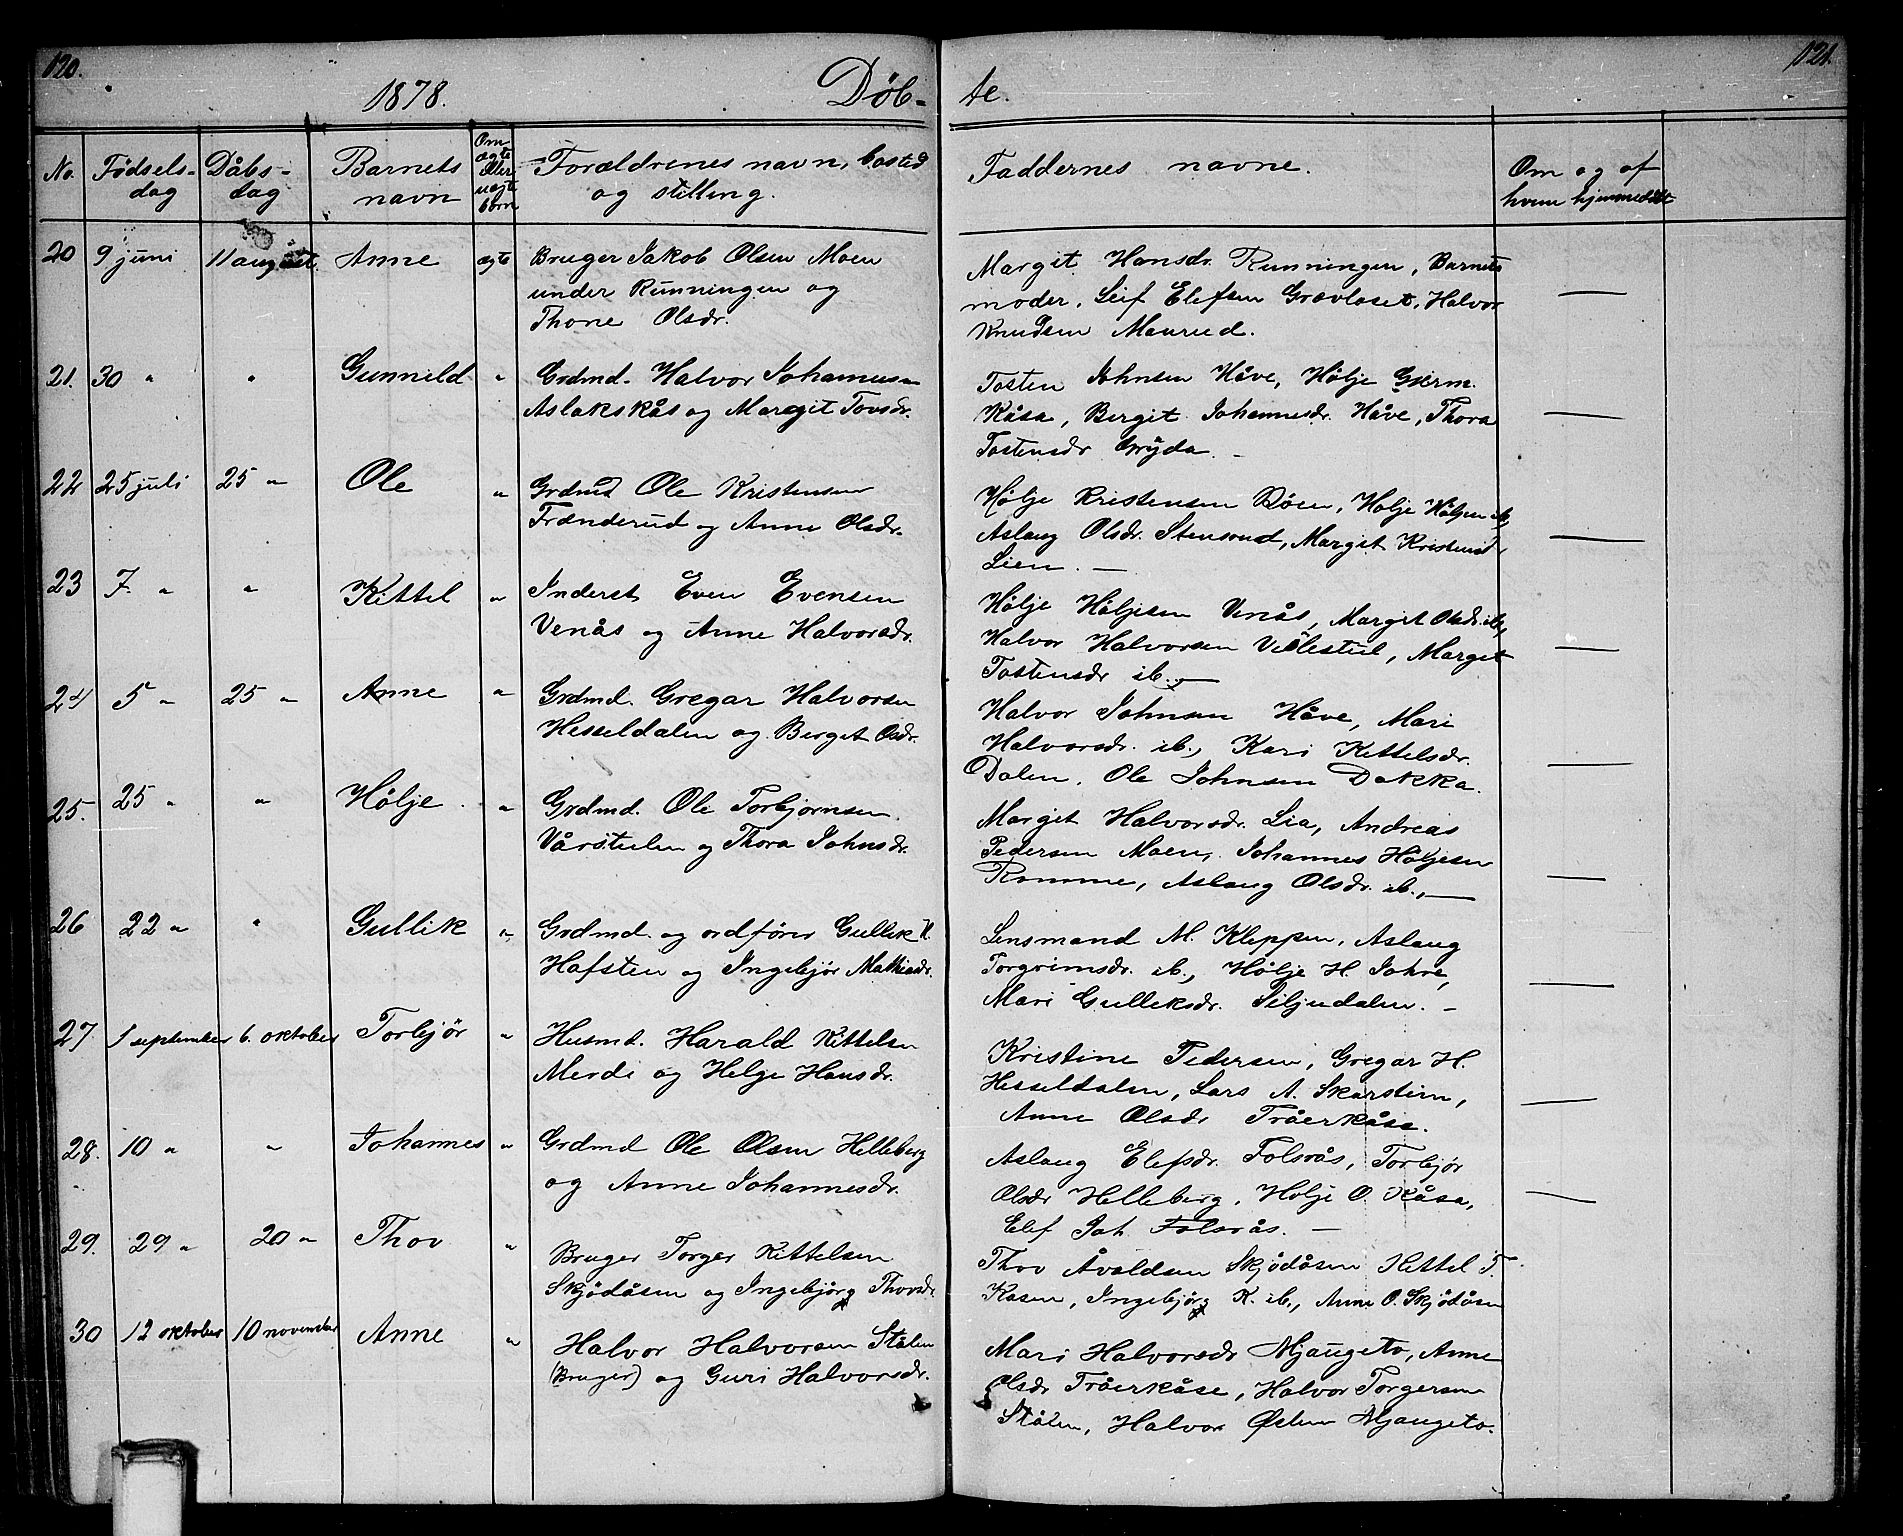 120.
121.
1878. Døb-te.
No. Fødsels-dag Dåbs-dag Barnets navn Om ægte eller uægte børn Forældrenes navn, bosted og stilling. Faddernes navne. Om og af hvem hjemmedøbt
20 9 juni 11 august. Anne ægte Bruger Jakob Olsen Moen
under Runningen og
Thone Olsdr.
Margit Hansdr. Runningen, Barnets
moder, Leif Elefsen Gravloset, Halvor
Knudsen Maurud.
21. 30 " " Gunnild " Grdmd. Halvor Johannesen
Aslakskås og Margit Tovsdr.
Tosten Johnsen Håve, Hølje Gjerm.
Kåsa, Bergit Johannesdr. Håve, Thora
Tostensdr Gryda. -
22 25 juli 25 " Ole " Grdmd Ole Kristensen
Trænderud og Anne Olsdr.
Hølje Kristensen Böen, Hølje Höljesen ib,
Aslaug Olsdr. Stensrud, Margit Kristensdr
Lien. -
23 7. " " Kittel " Inderst Even Evensen
Venås og Anne Halvorsdr.
Hölje Höljesen Venås, Margit Olsdr. ib.,
Halvor Halvorsen Velestul, Margit
Tostensdr ib. -
24 5 " 25 " Anne " Grdmd. Gregar Halvorsen
Hesseldalen og Berget Olsdr.
Halvor Johnsen Håve, Mari
Halvorsdr. ib., Kari Kittelsdr.
Dalen. Ole Johnsen Dokka.
25. 25 " " Hölje " Grdmd. Ole Torbjørnsen
Vårstulen og Thora Johnsdr.
Margit Halvorsdr. Lia, Andreas
Pedersen Moen, Johannes Höljesen
Romme, Aslaug Olsdr. ib. -
26 22 " " Gullik " Grdmd. og ordfører Gullik H.
Hofsten og Ingebjør Mathisdr.
Lensmand M. Kleppen, Aslaug
Torgrimsdr. ib., Hölje H. Johre,
Mari Gulleksdr. Siljudalen. -
27 1 september 6. oktober Torbjør " Husmd. Harald Kittelsen
Merdi og Helge Hansdr.
Kristine Pedersen, Gregar H.
Hesseldalen, Lars A. Skarstein,
Anne Olsdr Tråerkåsa.
28. 10 " " Johannes " Grdmd Ole Olsen Helleberg
og Anne Johannesdr.
Aslaug Elefsdr. Folsrås, Torbjør
Olsdr Helleberg, Holje O. Kåsa,
Elef Joh. Folsrås. -
29. 29 " 20 " Thov " Bruger Torger Kittelsen
Skjödåsen og Ingebjørg Thovsdr
Thov Åvaldsen Skjödåsen Kittel T.
Kasen, Ingebjørg K. ib., Anne O. Skjödåsen
30 12 oktober 10 november Anne " Halvor Halvorsen Stålen
(Bruger) og Guri Halvorsdr.
Mari Halvorsdr Mjaugeto, Anne
Olsdr Tråerkåse, Halvor Torgersen
Stålen, Halvor Østen Mjaugeto.